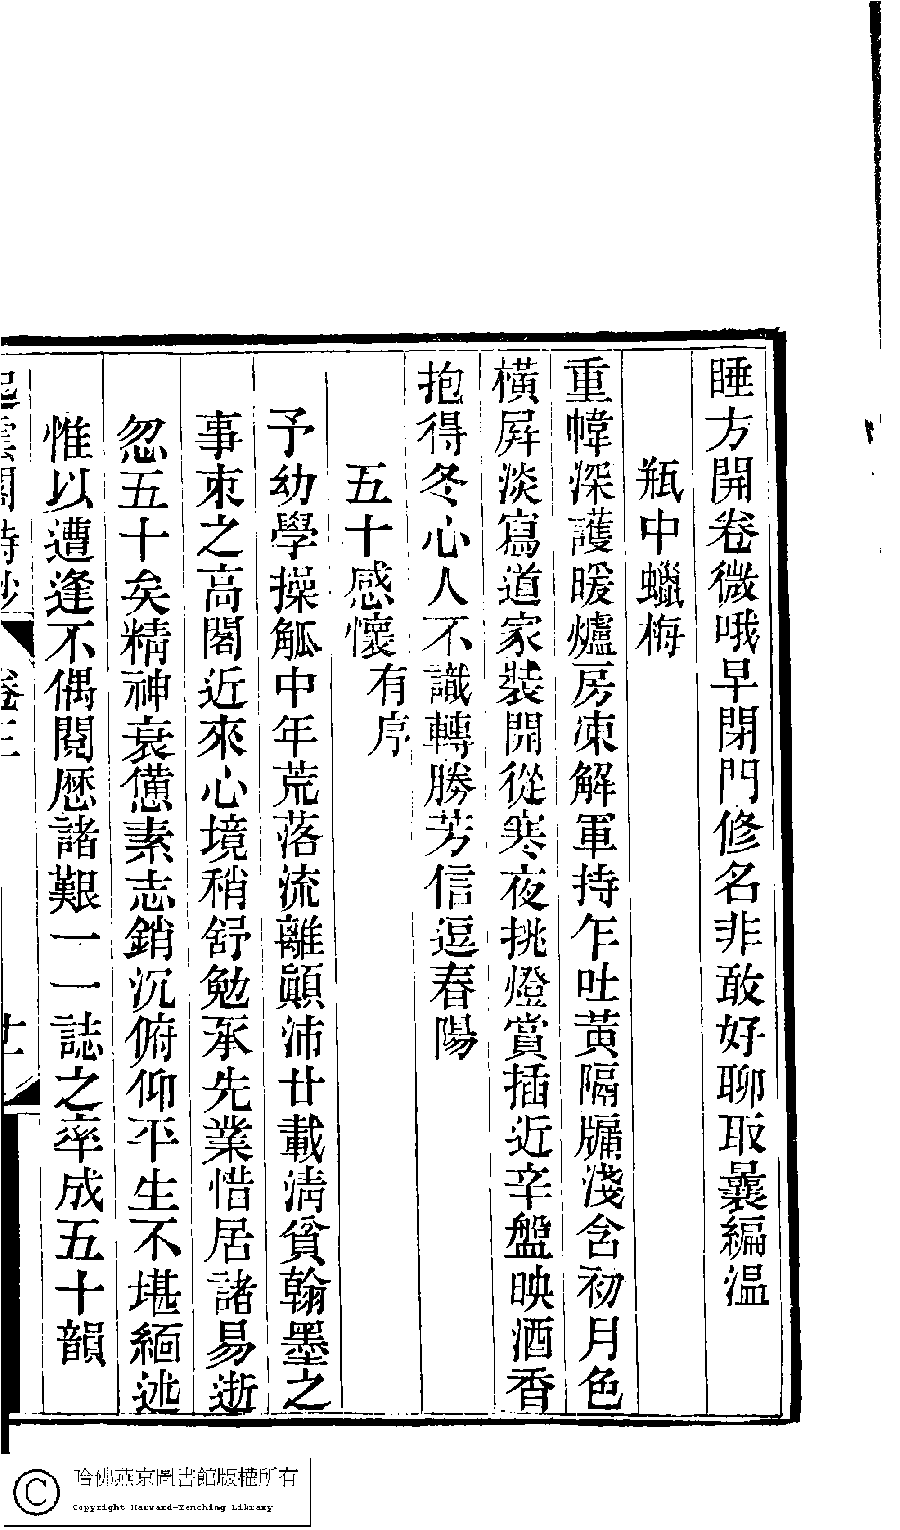 睡方開卷微哦早閉門修名非敢好聊取曩編溫
瓶中蠟梅
重幃深護暖爐房凍解軍持乍吐黃隔牖淺含初月色
橫屛淡寫道家裝開從寒夜挑燈賞插近辛盤映酒香
抱得冬心人不識轉勝芳信逗春陽
五十感懷有序
予幼學操觚中年荒落流離顚沛廿載淸貧翰墨之
事束之高閣近來心境稍舒勉承先業惜居諸易逝
忽五十矣精神衰憊素志銷沉俯仰平生不堪緬述
惟以遭逢不偶閱歷諸艱一一誌之率成五十韻
起雲閣詩鈔 卷三 廿一
哈佛燕京圖書館版權所有
Copyright Harvard-Yenching Library